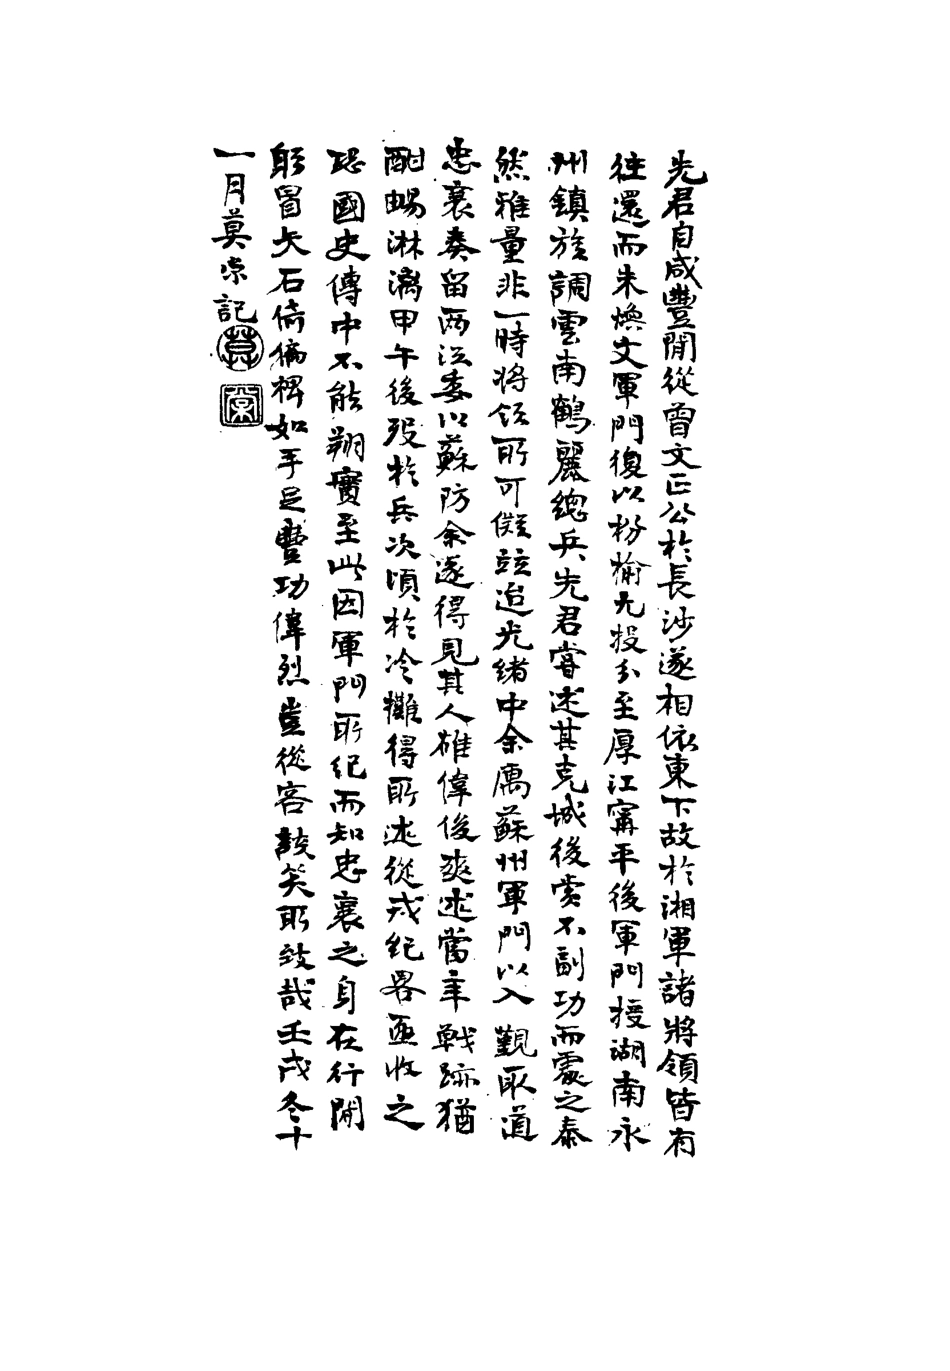 先君自咸豐間從曾文正公於長沙遂相依東下故於湘軍諸將領皆有
往還而朱煥文軍門復以枌榆尤投分至厚江甯平後軍門授湖南永
州鎮旋調雲南鶴麗總兵先君嘗述其克城後賞不副功而處之泰
然雅量非一時將領所可儗竝迨光緒中余寓蘇州軍門以入覲取道
忠襄奏留两江委以蘇防余遂得見其人雄偉俊爽述當年戰跡猶
酣暢淋漓甲午後歿於兵次頃於冷攤得所述從戎紀畧亟收之
國史傳中不能翔實至此因軍門所紀而知忠襄之身在行間
躬冒矢石倚偏裨如手足豐功偉烈豈從容談笑所致哉壬戌冬十
一月莫棠記
莫
棠